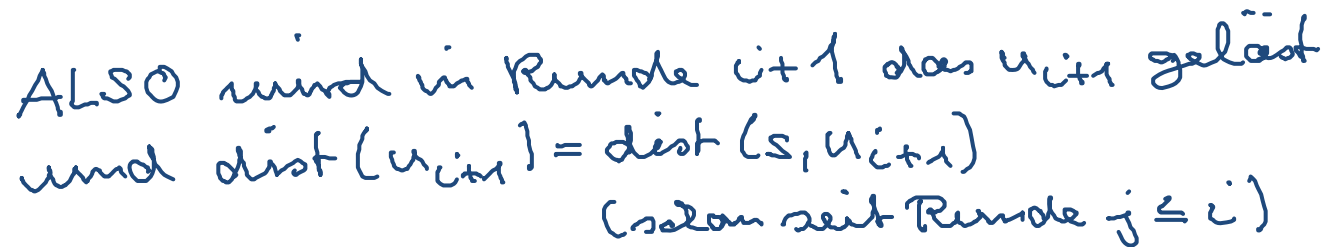 ALSO wird in Runde i+1 das u_{i+1} gelöst
und dist(u_{i+1}) = dist(s, u_{i+1})
(schon seit Runde j ≤ i)